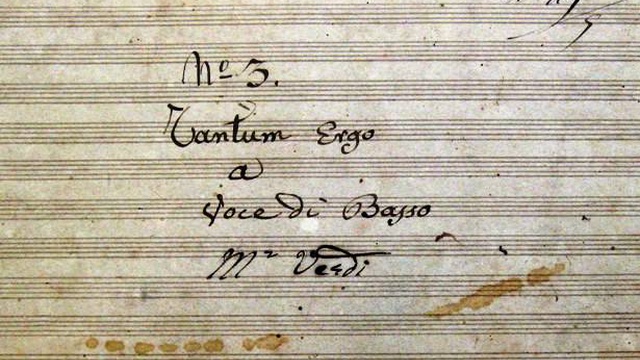 Nº 3.
Tantum Ergo
a
Voce di Basso
Mº Verdi